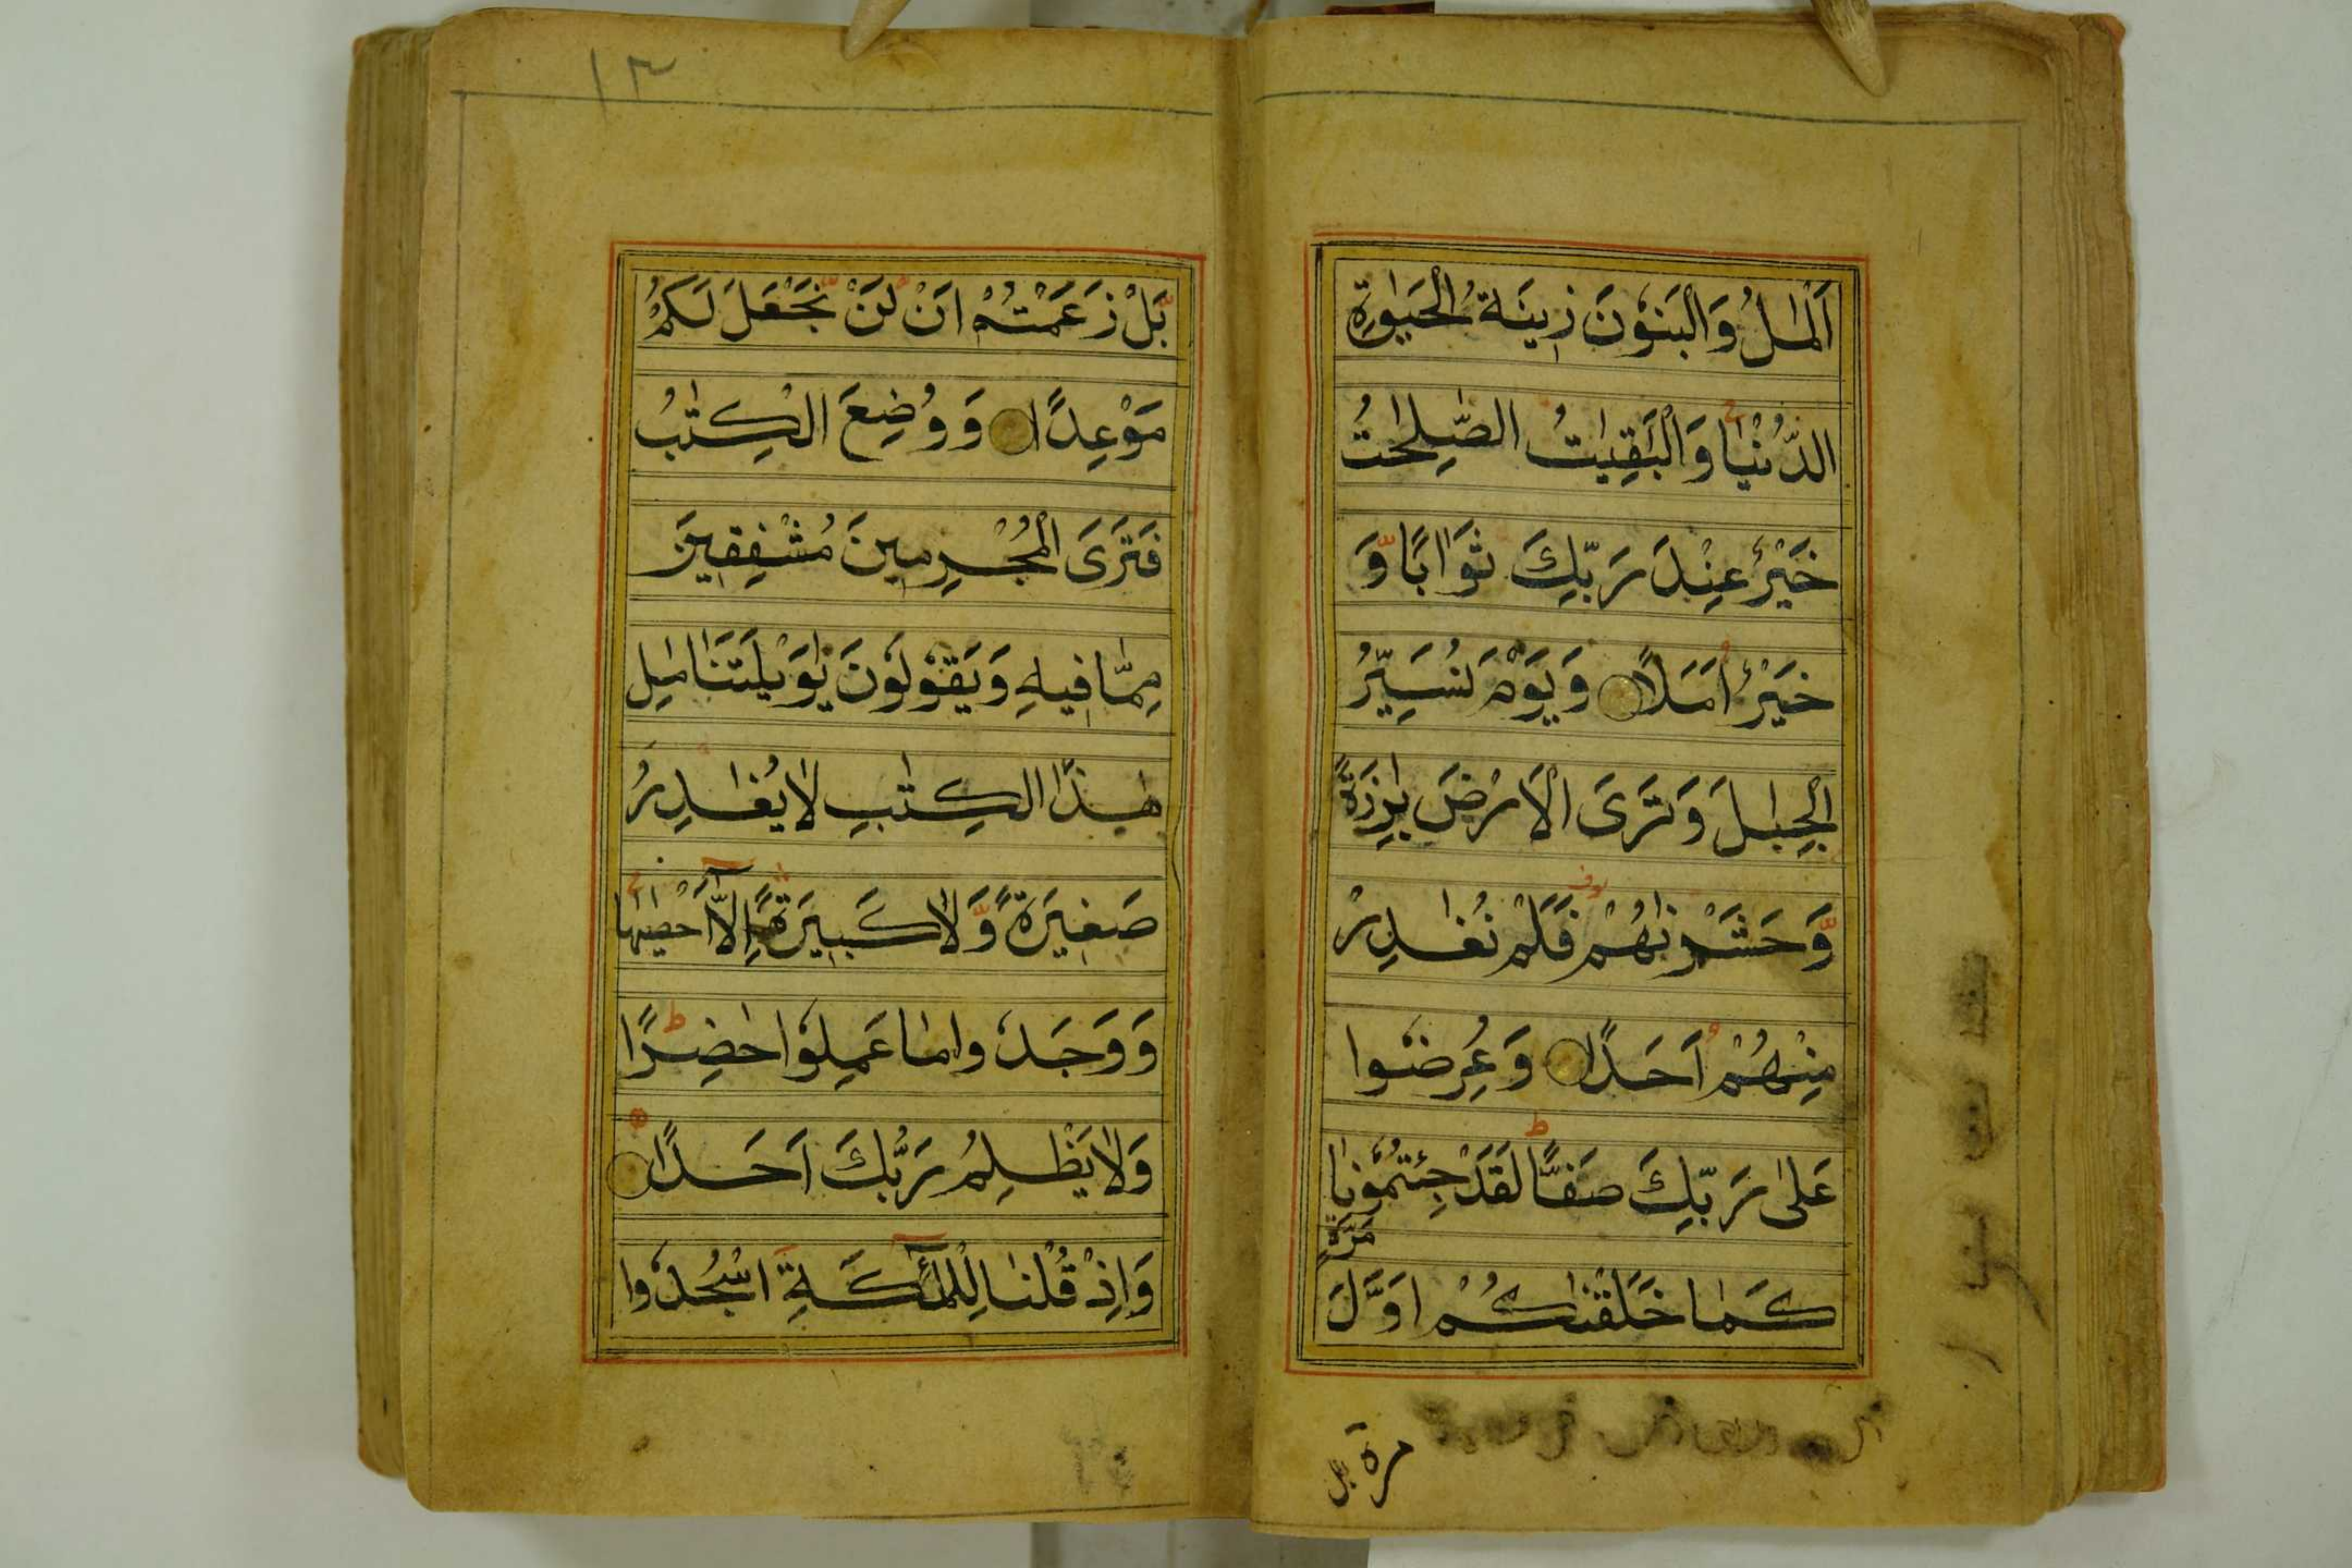 اَلْمٰلُ وَالْبَنُوْنَ زِيْنَةُ الْحَيٰوةِ
الدُّنْيٰا وَالْبٰقِيٰتُ الصّٰلِحٰتُ
خَيْرٌ عِنْدَ رَبِّكَ ثَوَابًا وَّ
خَيْرٌ اَمَلًا وَيَوْمَ نُسَيِّرُ
الْجِبٰلَ وَتَرَى الْاَرْضَ بٰرِزَةً
وَّحَشَرْنٰهُمْ فَلَمْ نُغٰدِرْ
مِنْهُمْ اَحَدًا وَعُرِضُوا
عَلٰى رَبِّكَ صَفًّا لَقَدْ جِئْتُمُوْنٰا
كَمٰا خَلَقْنٰكُمْ اَوَّلَ
مَرَّةٍ
مرة بل
١٣
بَلْ زَعَمْتُمْ اَنْ لَنْ نَّجْعَلَ لَكُمْ
مَوْعِدًا وَوُضِعَ الْكِتٰبُ
فَتَرَى الْمُجْرِمِينَ مُشْفِقِينَ
مِمّٰا فِيهِ وَيَقُوْلُوْنَ يٰوَيْلَتَنٰا مٰلِ
هٰذَا الْكِتٰبِ لٰا يُغٰدِرُ
صَغِيرَةً وَّلٰا كَبِيرَةً اِلّٰآ اَحْصٰيهٰا
وَوَجَدُوا مٰا عَمِلُوْا حٰضِرًا
وَلٰا يَظْلِمُ رَبُّكَ اَحَدًا
وَاِذْ قُلْنٰا لِلْمَلٰٓئِكَةِ اسْجُدُوا